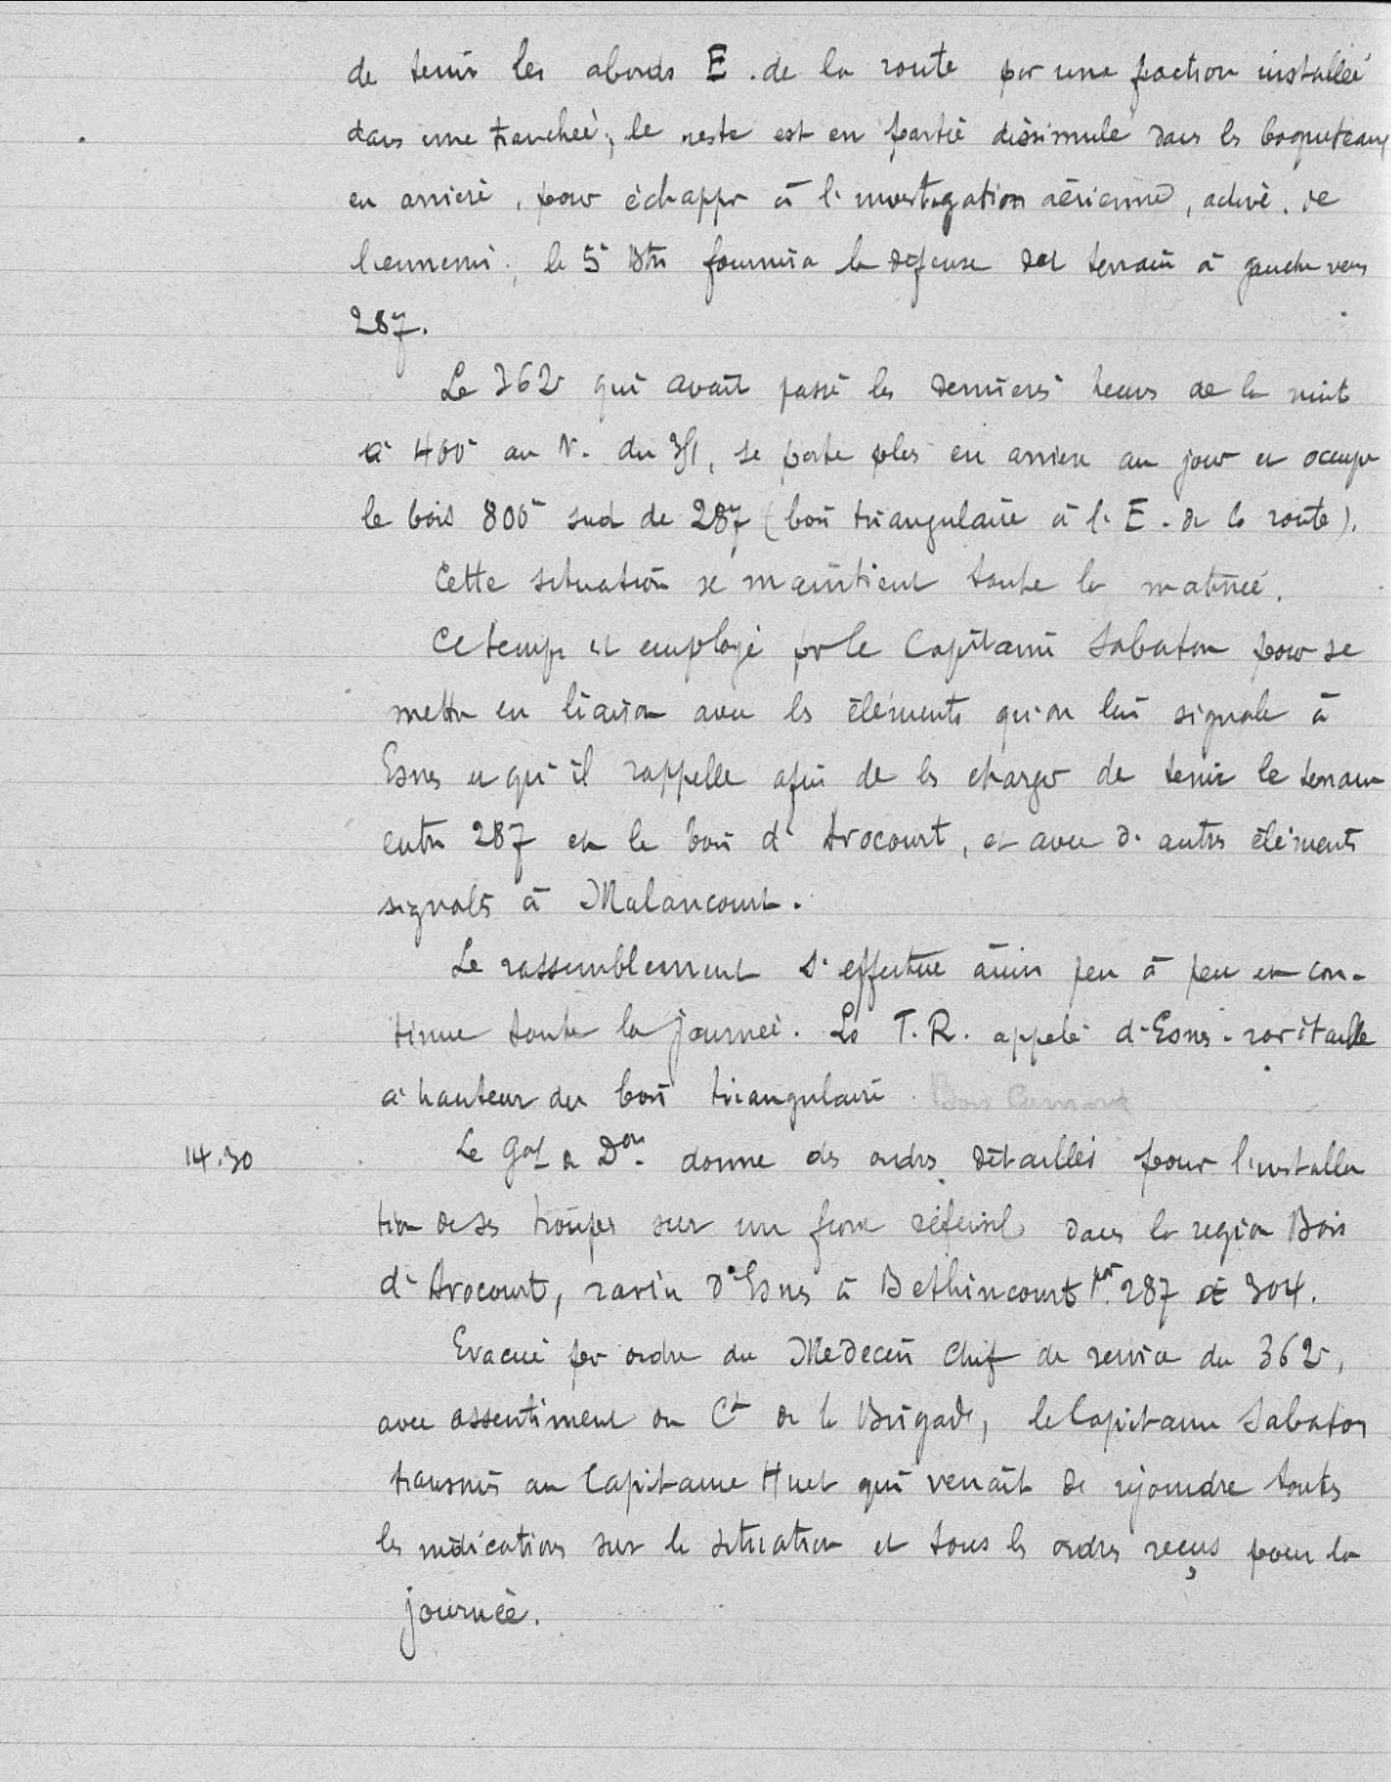 de tenir les abords E. de la route par une fraction installée
dans une tranchée; le reste est en partie dissimulé dans les boqueteaux
en arrière, pour échapper à l'investigation aérienne, active, de
l'ennemi; le 5e Btn fournira la défense du terrain à gauche vers
287.
Le 362 qui avait passé les dernières heures de la nuit
à 400m au N. du 351, se porte plus en arrière au jour et occupe
le bois 800m sud de 287 (bois triangulaire à l'E. de la route).
Cette situation se maintient toute la matinée.
Ce temps est employé par le Capitaine Sabaton pour se
mettre en liaison avec les éléments qu'on lui signale à
Esnes et qu'il rappelle afin de les charger de tenir le terrain
entre 287 et le bois d'Avocourt, et avec d'autres éléments
signalés à Malancourt.
Le rassemblement s'effectue ainsi peu à peu et con-
tinue toute la journée. Le T.R. appelé d'Esnes ravitaille
à hauteur du bois triangulaire. Bois
14.30 Le Gal de Don. donne des ordres détaillés pour l'installa
tion de ses troupes sur un front défensif dans la région Bois
d'Avocourt, ravin d'Esnes à Bethincourt par 287 et 304.
Evacué par ordre du Medecin Chef de service du 362,
avec assentiment du Ct de la Brigade, le Capitaine Sabaton
transmis au Capitaine Huet qui venait de rejoindre toutes
les indications sur la situation et tous les ordres reçus pour la
journée.